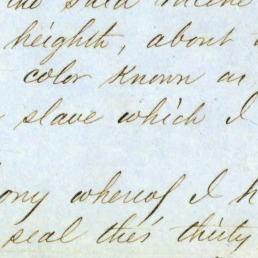 the said
heighth, about
color known as
slave which I
ony whereof I h
seal this thirty